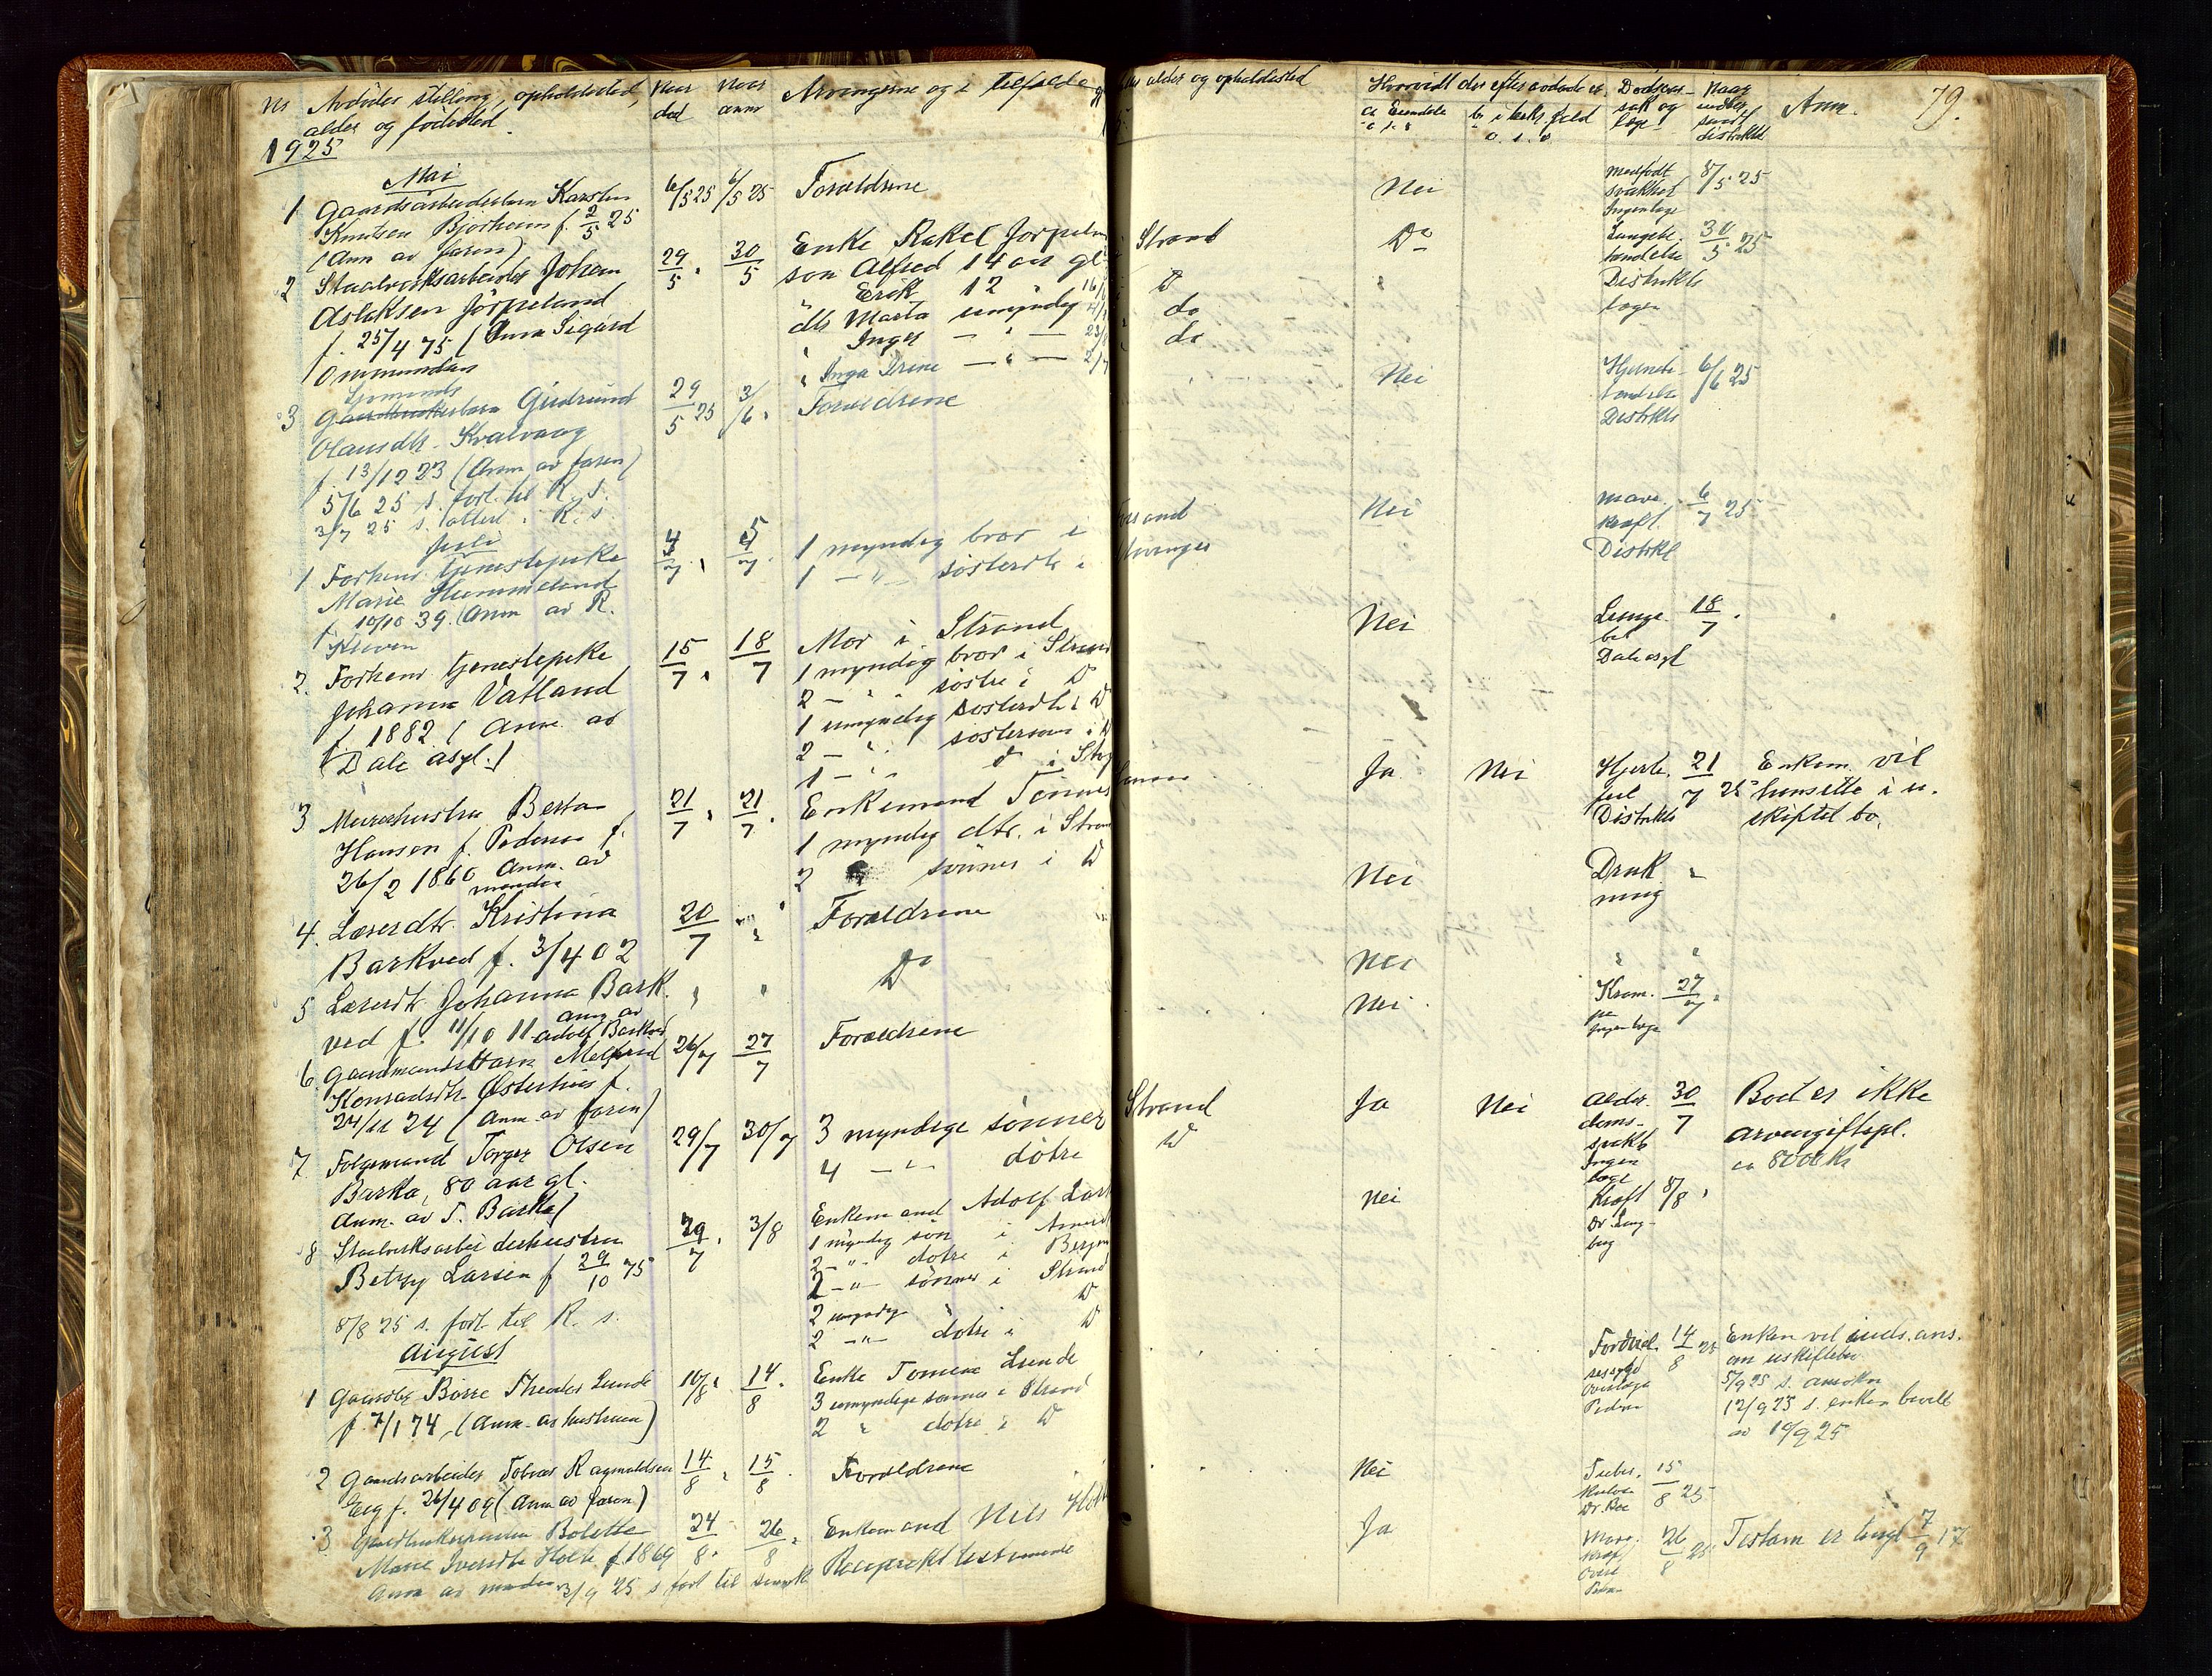 Nr Avdødes stilling, opholdssted, alder og fødested. Naar død Naar anm. Arvingerne og i tilfælde alder og opholdssted Hvorvidt der efter avdøde er Dødsaarsak og læge Naar indber. Anm. 79.
1925
Mai
1 Gaardsarbeiderbarn Karsten 6/5 25 6/5 25 Forældrene Nei Medfødt svakhet 8/5 25
Knutsen Bjørheim f. 2/5 25 Ingen læge
(Anm av faren)
2 Staalverksarbeider Johan 29/5 30/5 Enke Rakel Jørpeland Strand Do Lungebetændelse 30/5 25
Aslaksen Jørpeland søn Alfred 14 aar gl. D Distriktslægen
f. 25/4 75 (Anm Sigurd Erik 12
Ommundsen dtr Marta umyndig do
Inger do
Inga Irene
3 Gudrund 29/5 25 3/6 Forældrene Nei 6/6 25
Olausdtr. Kvalvaag Distrikts
f. 13/12 23 (Anm av faren)
5/6 25 s. fort. til R. s.
3/7 25 s. atterl. i R. s.
Juli
1 Forhenv. tjenestepike 4/7 5/7 1 myndig bror i Forsand Nei Mavekræft 6/7 25
Marie Hummeland 1 —"— søsterdtr i Stavanger Distrikt
f. 10/10 39. (Anm av R.
2. Forhenv tjenestepike 15/7 18/7 Mor i Strand Nei Lunge 18/7
Johanne Vatland 1 myndig bror i Strand
f. 1882. (Anm. av 2 — " søstre i D Dale asyl
(Dale asyl.) 1 umyndig søsterdtr i D
2 — " søstersøn i D
1 — " d i
3 Murerhustru Berta 21/7 21/7 Enkemand Tønnes Hansen Ja Nei Hjertefeil 21/7 25 Enkem. vil
Hansen f. Pedersen f. 1 myndig dtr. i Strand Distrikts hensitte i u.
26/2 1860 Anm. av manden 2 sønner i D skiftet bo.
4. Lærerdtr. Kristina 20/7 " Forældrene Nei Drukning "
Barkved f. 3/4 02
5 Lærerdtr Johanna Bark- " " Do Nei " "
ved f. 11/10 11 Anm av Adolf Barkved
6. Gaardmandsbarn Melfrid 26/7 27/7 Forældrene Nei Krampe 27/7
Konradsdtr. Østerhus f. Ingen læge
24/11 24 (Anm. av faren)
7 Følgemand Torger Olsen 29/7 30/7 3 myndige sønner Strand Ja Nei Alderdomssvakh 30/7 Boet er ikke
Barka, 80 aar gl. 4 —"— døtre D Ingen læge arveavgiftspl.
Anm. av T. Barka) ca 800 kr
8 Staalverksarbeiderhustru 29/7 3/8 Enkemand Adolf Larsen Nei Kræft 8/8
Betzy Larsen f 29/10 75 1 myndig søn i Amerika
2 —"— døtre i Bergen
2 —"— sønner i Strand
8/8 25 s. fort. til R. s. 2 umyndg " D
2 —"— døtre i D
August
1 Gaardbr Børre Theodor Lunde 10/8 14/8 Enke Tomine Lunde 14/8 25 Enken vil inds. ans.
f. 7/1 74, (Anm. av hustruen) 3 umyndige sønner i Strand om uskiftebo
2 " døtre i D 5/9 25 s. ansøkn
12/9 25 s. enken bevill
av 10/9 25
2 Gaardsarbeider Tobias Ragnvaldsen 14/8 15/8 Forældrene Nei Tuberkulose 15/8 25
Eeg f. 26/4 09 (Anm av faren) Dr. Boe
3 Gaardbrukerhustru Bolette 24/8 26/8 Enkemand Nils Holte Ja Mavekræf 26/8 25 Testam er tingl 7/9 17
Marie Iversdtr Holte f. 1869 Reciprokt testamente
Anm av manden 3/9 25 s fort til